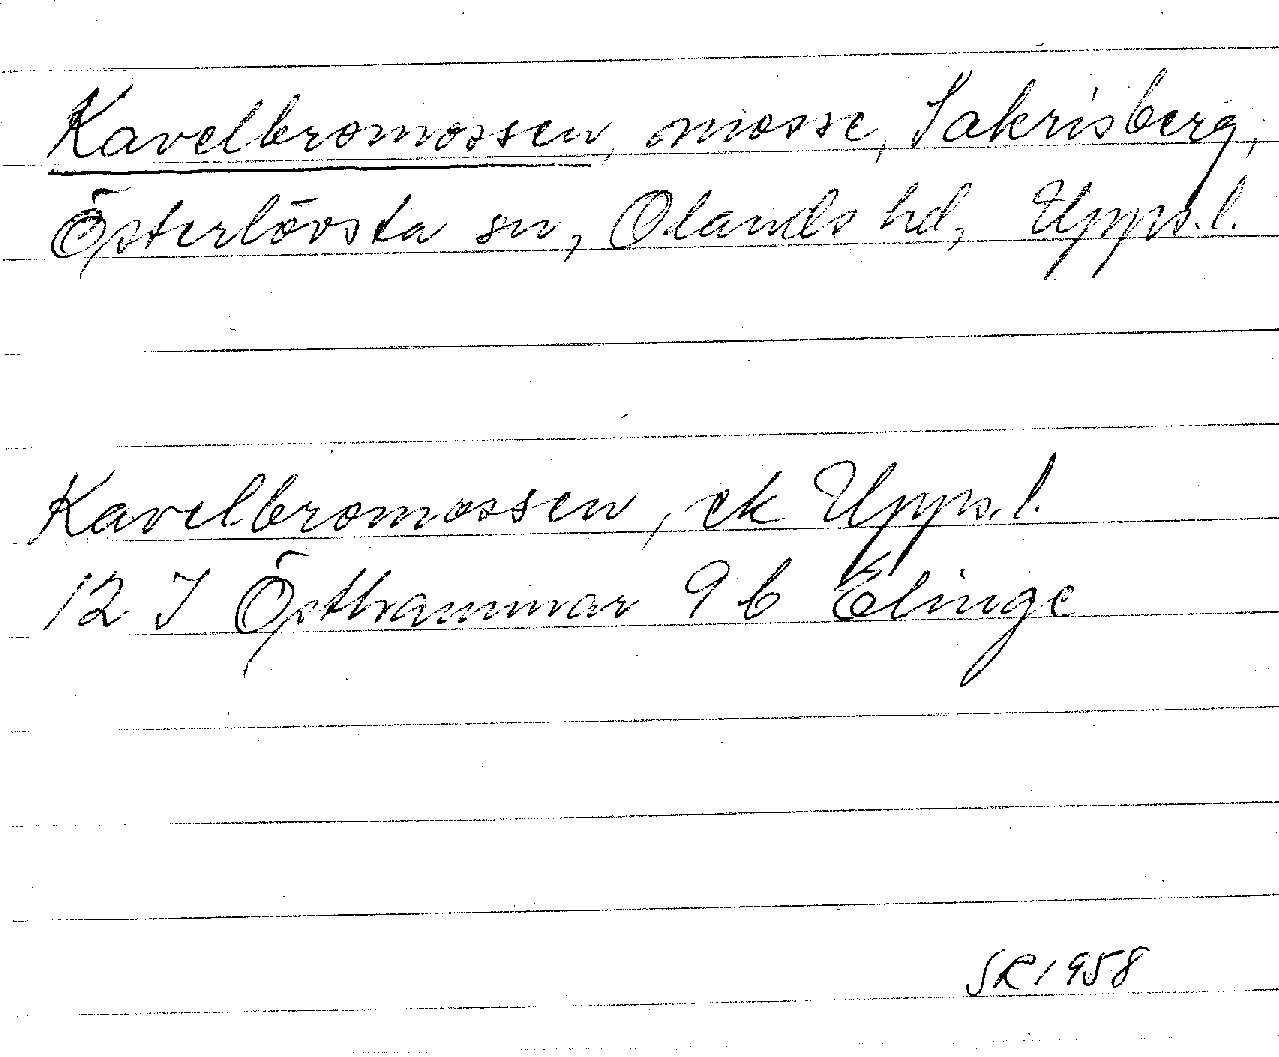 Kavelbromossen, mosse, Sakrisberg,
Österlövsta sn, Olands hd, Upps.l.
Kavelbromossen, ek Upps.l.
12 I Östhammar 9 b Elinge
SR 1958